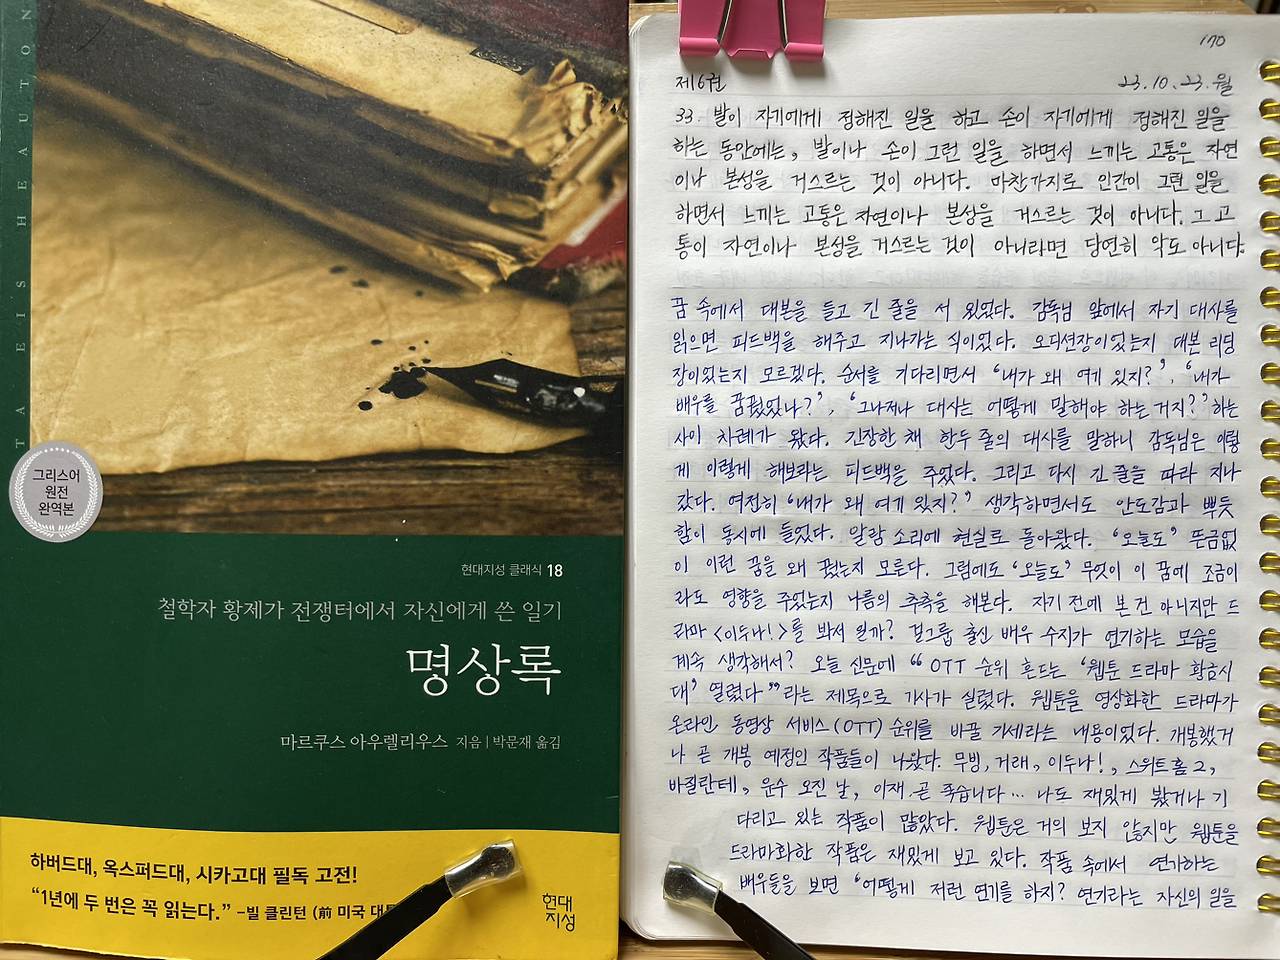 TA EIS HEAUTON
그리스어
원전
완역본
현대지성 클래식 18
철학자 황제가 전쟁터에서 자신에게 쓴 일기
명상록
마르쿠스 아우렐리우스 지음 | 박문재 옮김
하버드대, 옥스퍼드대, 시카고대 필독 고전!
“1년에 두 번은 꼭 읽는다.” –빌 클린턴 (前 미국 대통
현대
지성
170
제6권 23.10.23.월
33. 발이 자기에게 정해진 일을 하고 손이 자기에게 정해진 일을
하는 동안에는, 발이나 손이 그런 일을 하면서 느끼는 고통은 자연
이나 본성을 거스르는 것이 아니다. 마찬가지로 인간이 그런 일을
하면서 느끼는 고통은 자연이나 본성을 거스르는 것이 아니다. 그 고
통이 자연이나 본성을 거스르는 것이 아니라면 당연히 악도 아니다.
꿈 속에서 대본을 들고 긴 줄을 서 있었다. 감독님 앞에서 자기 대사를
읽으면 피드백을 해주고 지나가는 식이었다. 오디션장이었는지 대본 리딩
장이었는지 모르겠다. 순서를 기다리면서 ‘내가 왜 여기 있지?’, ‘내가
배우를 꿈꿨었나?’, ‘그나저나 대사는 어떻게 말해야 하는거지?’ 하는
사이 차례가 왔다. 긴장한 채 한두 줄의 대사를 말하니 감독님은 이렇
게 이렇게 해보라는 피드백을 주었다. 그리고 다시 긴 줄을 따라 지나
갔다. 여전히 ‘내가 왜 여기 있지?’ 생각하면서도 안도감과 뿌듯
함이 동시에 들었다. 알람 소리에 현실로 돌아왔다. ‘오늘도’ 뜬금없
이 이런 꿈을 왜 꿨는지 모른다. 그럼에도 ‘오늘도’ 무엇이 이 꿈에 조금이
라도 영향을 주었는지 나름의 추측을 해본다. 자기 전에 본 건 아니지만 드
라마 <이두나!>를 봐서 일까? 걸그룹 출신 배우 수지가 연기하는 모습을
계속 생각해서? 오늘 신문에 “OTT 순위 흔드는 ‘웹툰 드라마 황금시
대’ 열렸다”라는 제목으로 기사가 실렸다. 웹툰을 영상화한 드라마가
온라인 동영상 서비스(OTT) 순위를 바꿀 기세라는 내용이었다. 개봉했거
나 곧 개봉 예정인 작품들이 나왔다. 무빙, 거래, 이두나!, 스위트홈 2,
바질란테, 운수 오진 날, 이재, 곧 죽습니다… 나도 재밌게 봤거나 기
다리고 있는 작품이 많았다. 웹툰은 거의 보지 않지만 웹툰을
드라마화한 작품은 재밌게 보고 있다. 작품 속에서 연기하는
배우들을 보면 ‘어떻게 저런 연기를 하지? 연기라는 자신의 일을